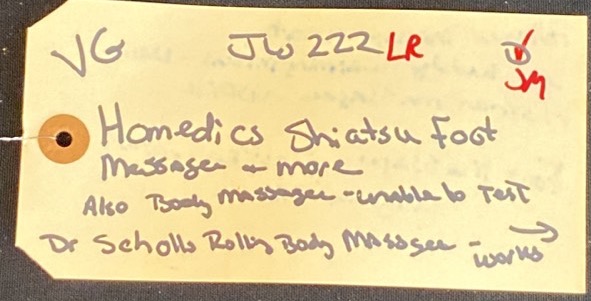 VG JW 222 LR
JM
Homedics Shiatsu Foot
Massager + more
Also Body Massager - unable to Test
Dr Scholls Rolling Body Massager - works →